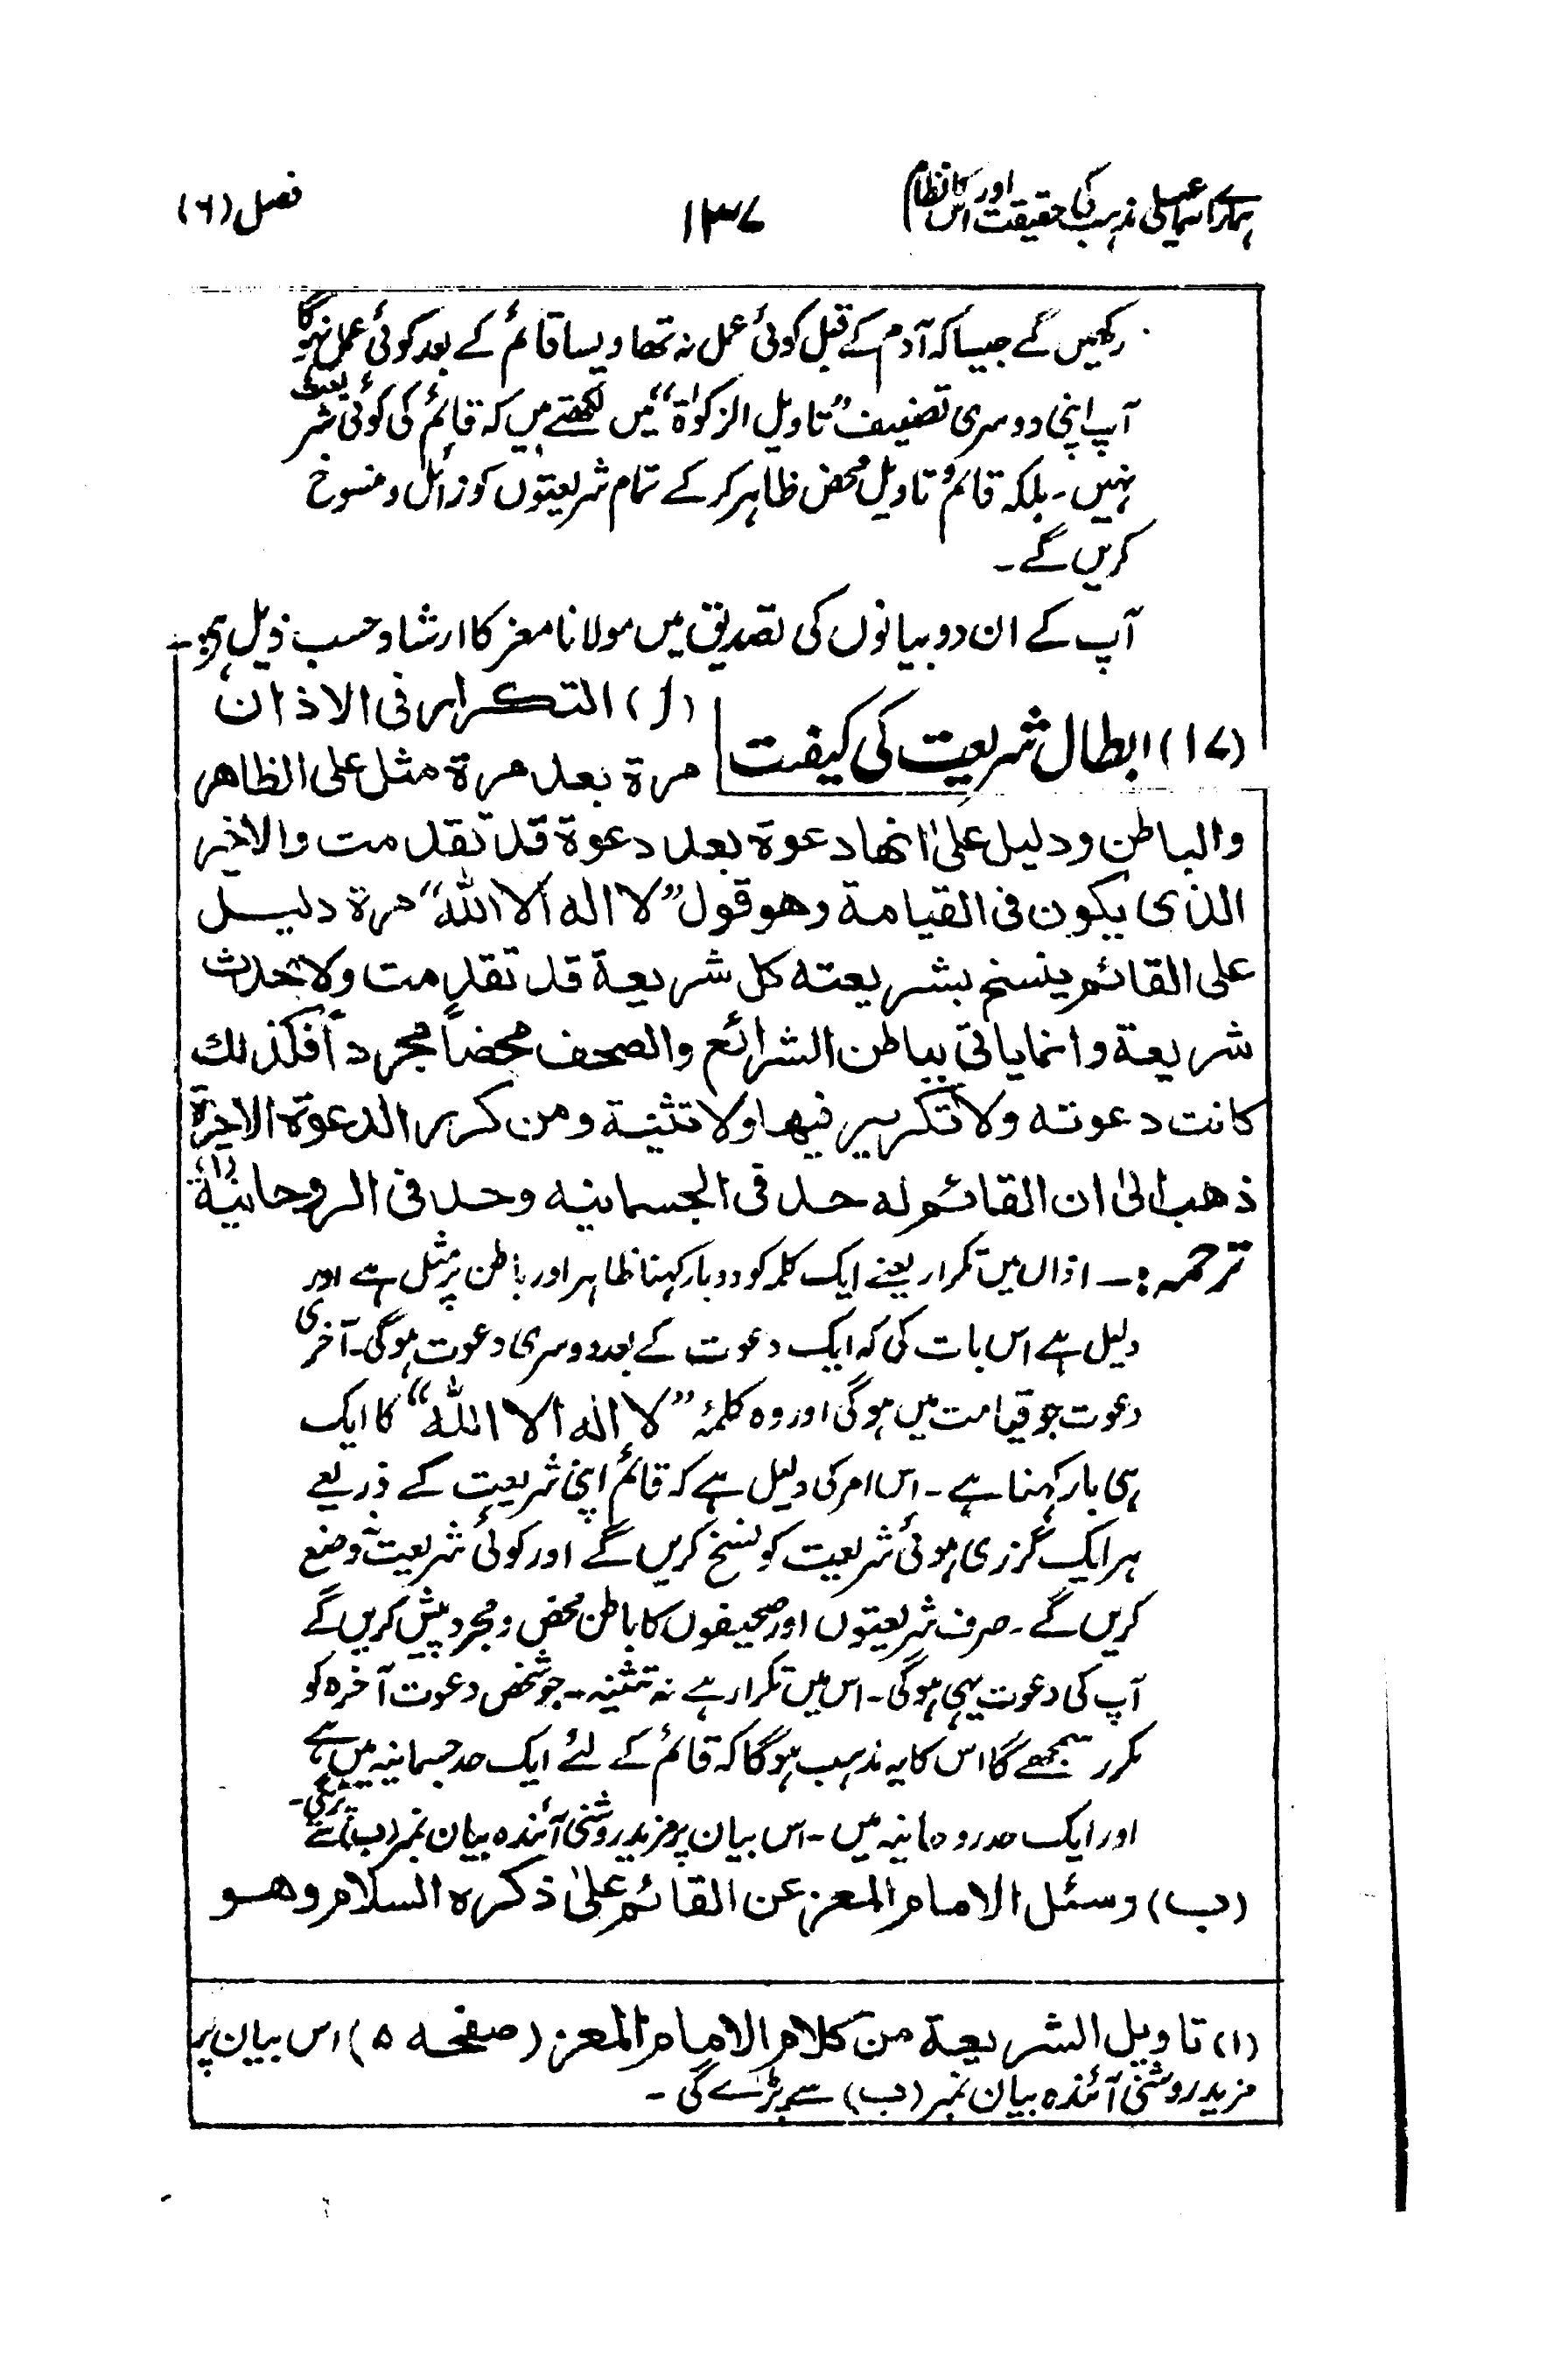 ہمارے اسماعیلی مذہب کی حقیقت اور اس کا نظام
۱۳۷
فصل (۶)
رکھیں گے جیسا کہ آدم کے قبل کوئی عمل نہ تھا ویسا قائمؑ کے بعد کوئی عمل نہ ہوگا
آپ اپنی دوسری تصنیف "تاویل الزکوٰۃ" میں لکھتے ہیں کہ قائمؑ کی کوئی شریعت
نہیں ۔ بلکہ قائمؑ تاویل محض ظاہر کر کے تمام شریعتوں کو زائل و منسوخ
کریں گے ۔
آپ کے ان دو بیانوں کی تصدیق میں مولانا معز کا ارشاد حسب ذیل ہے:۔
(۱۷) ابطال شریعت کی کیفیت
(ا) التکرار فی الاذان
مرة بعد مرة مثل علی الظاهر
والباطن ودلیل علیٰ انھا دعوة بعد دعوة قد تقدمت والاخیر
الذی یکون فی القیامة وھو قول "لا اله الا الله" مرة دلیل
علی القائم ینسخ بشریعته کل شریعة قد تقدمت ولا تحدث
شریعة وانما یاتی بباطن الشرائع والصحف محضاً مجرداً فکذلك
کانت دعوته ولا تکریر فیھا ولا تثنیة ومن کرر الدعوة الاخرة
ذھب الیٰ ان القائم له حد فی الجسمانیه وحد فی الروحانیة (۱)
ترجمہ :۔ اذاں میں تکرار یعنے ایک کلمہ کو دو بار کہنا ظاہر اور باطن پر مثل ہے اور
دلیل ہے اس بات کی کہ ایک دعوت کے بعد دوسری دعوت ہوگی۔ آخری
دعوت جو قیامت میں ہوگی اور وہ کلمۂ "لا اله الا الله" کا ایک
ہی بار کہنا ہے ۔ اس امر کی دلیل ہے کہ قائمؑ اپنی شریعت کے ذریعے
ہر ایک گزری ہوئی شریعت کو نسخ کریں گے اور کوئی شریعت نہ وضع
کریں گے ۔ صرف شریعتوں اور صحیفوں کا باطن محض و مجرد پیش کریں گے
آپ کی دعوت یہی ہوگی ۔ اس میں تکرار ہے نہ تثنیہ ۔ جو شخص دعوت آخرہ کو
مکرر سمجھے گا اس کا یہ مذہب ہوگا کہ قائمؑ کے لئے ایک حد جسمانیہ میں ہے
اور ایک حد روحانیہ میں ۔ اس بیان پر مزید روشنی آئندہ بیان نمبر (ب) سے پڑے گی ۔
(ب) وسئل الامام المعز عن القائم علیٰ ذکره السلام وھو
(۱) تاویل الشریعة من کلام الامام المعز (صفحه ۵) اس بیان پر
مزید روشنی آئندہ بیان نمبر (ب) سے پڑے گی ۔